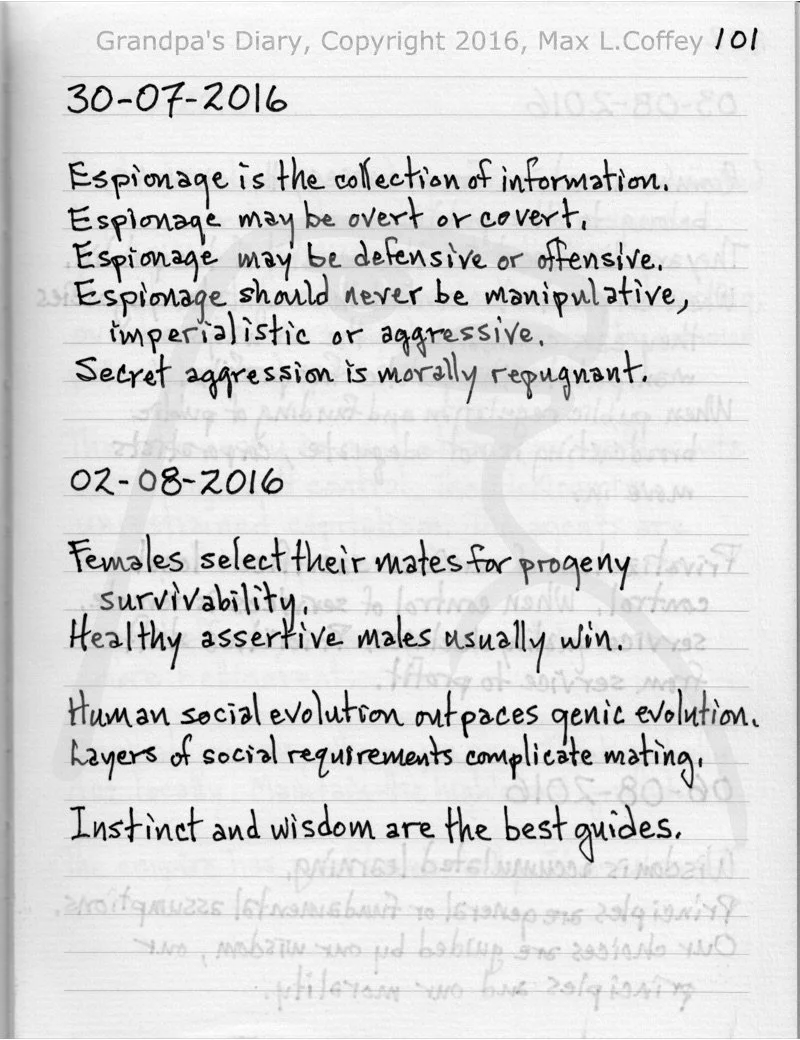 Grandpa's Diary, Copyright 2016, Max L.Coffey 101
30-07-2016
Espionage is the collection of information.
Espionage may be overt or covert.
Espionage may be defensive or offensive.
Espionage should never be manipulative,
imperialistic or aggressive.
Secret aggression is morally repugnant.
02-08-2016
Females select their mates for progeny
survivability.
Healthy assertive males usually win.
Human social evolution outpaces genic evolution.
Layers of social requirements complicate mating.
Instinct and wisdom are the best guides.